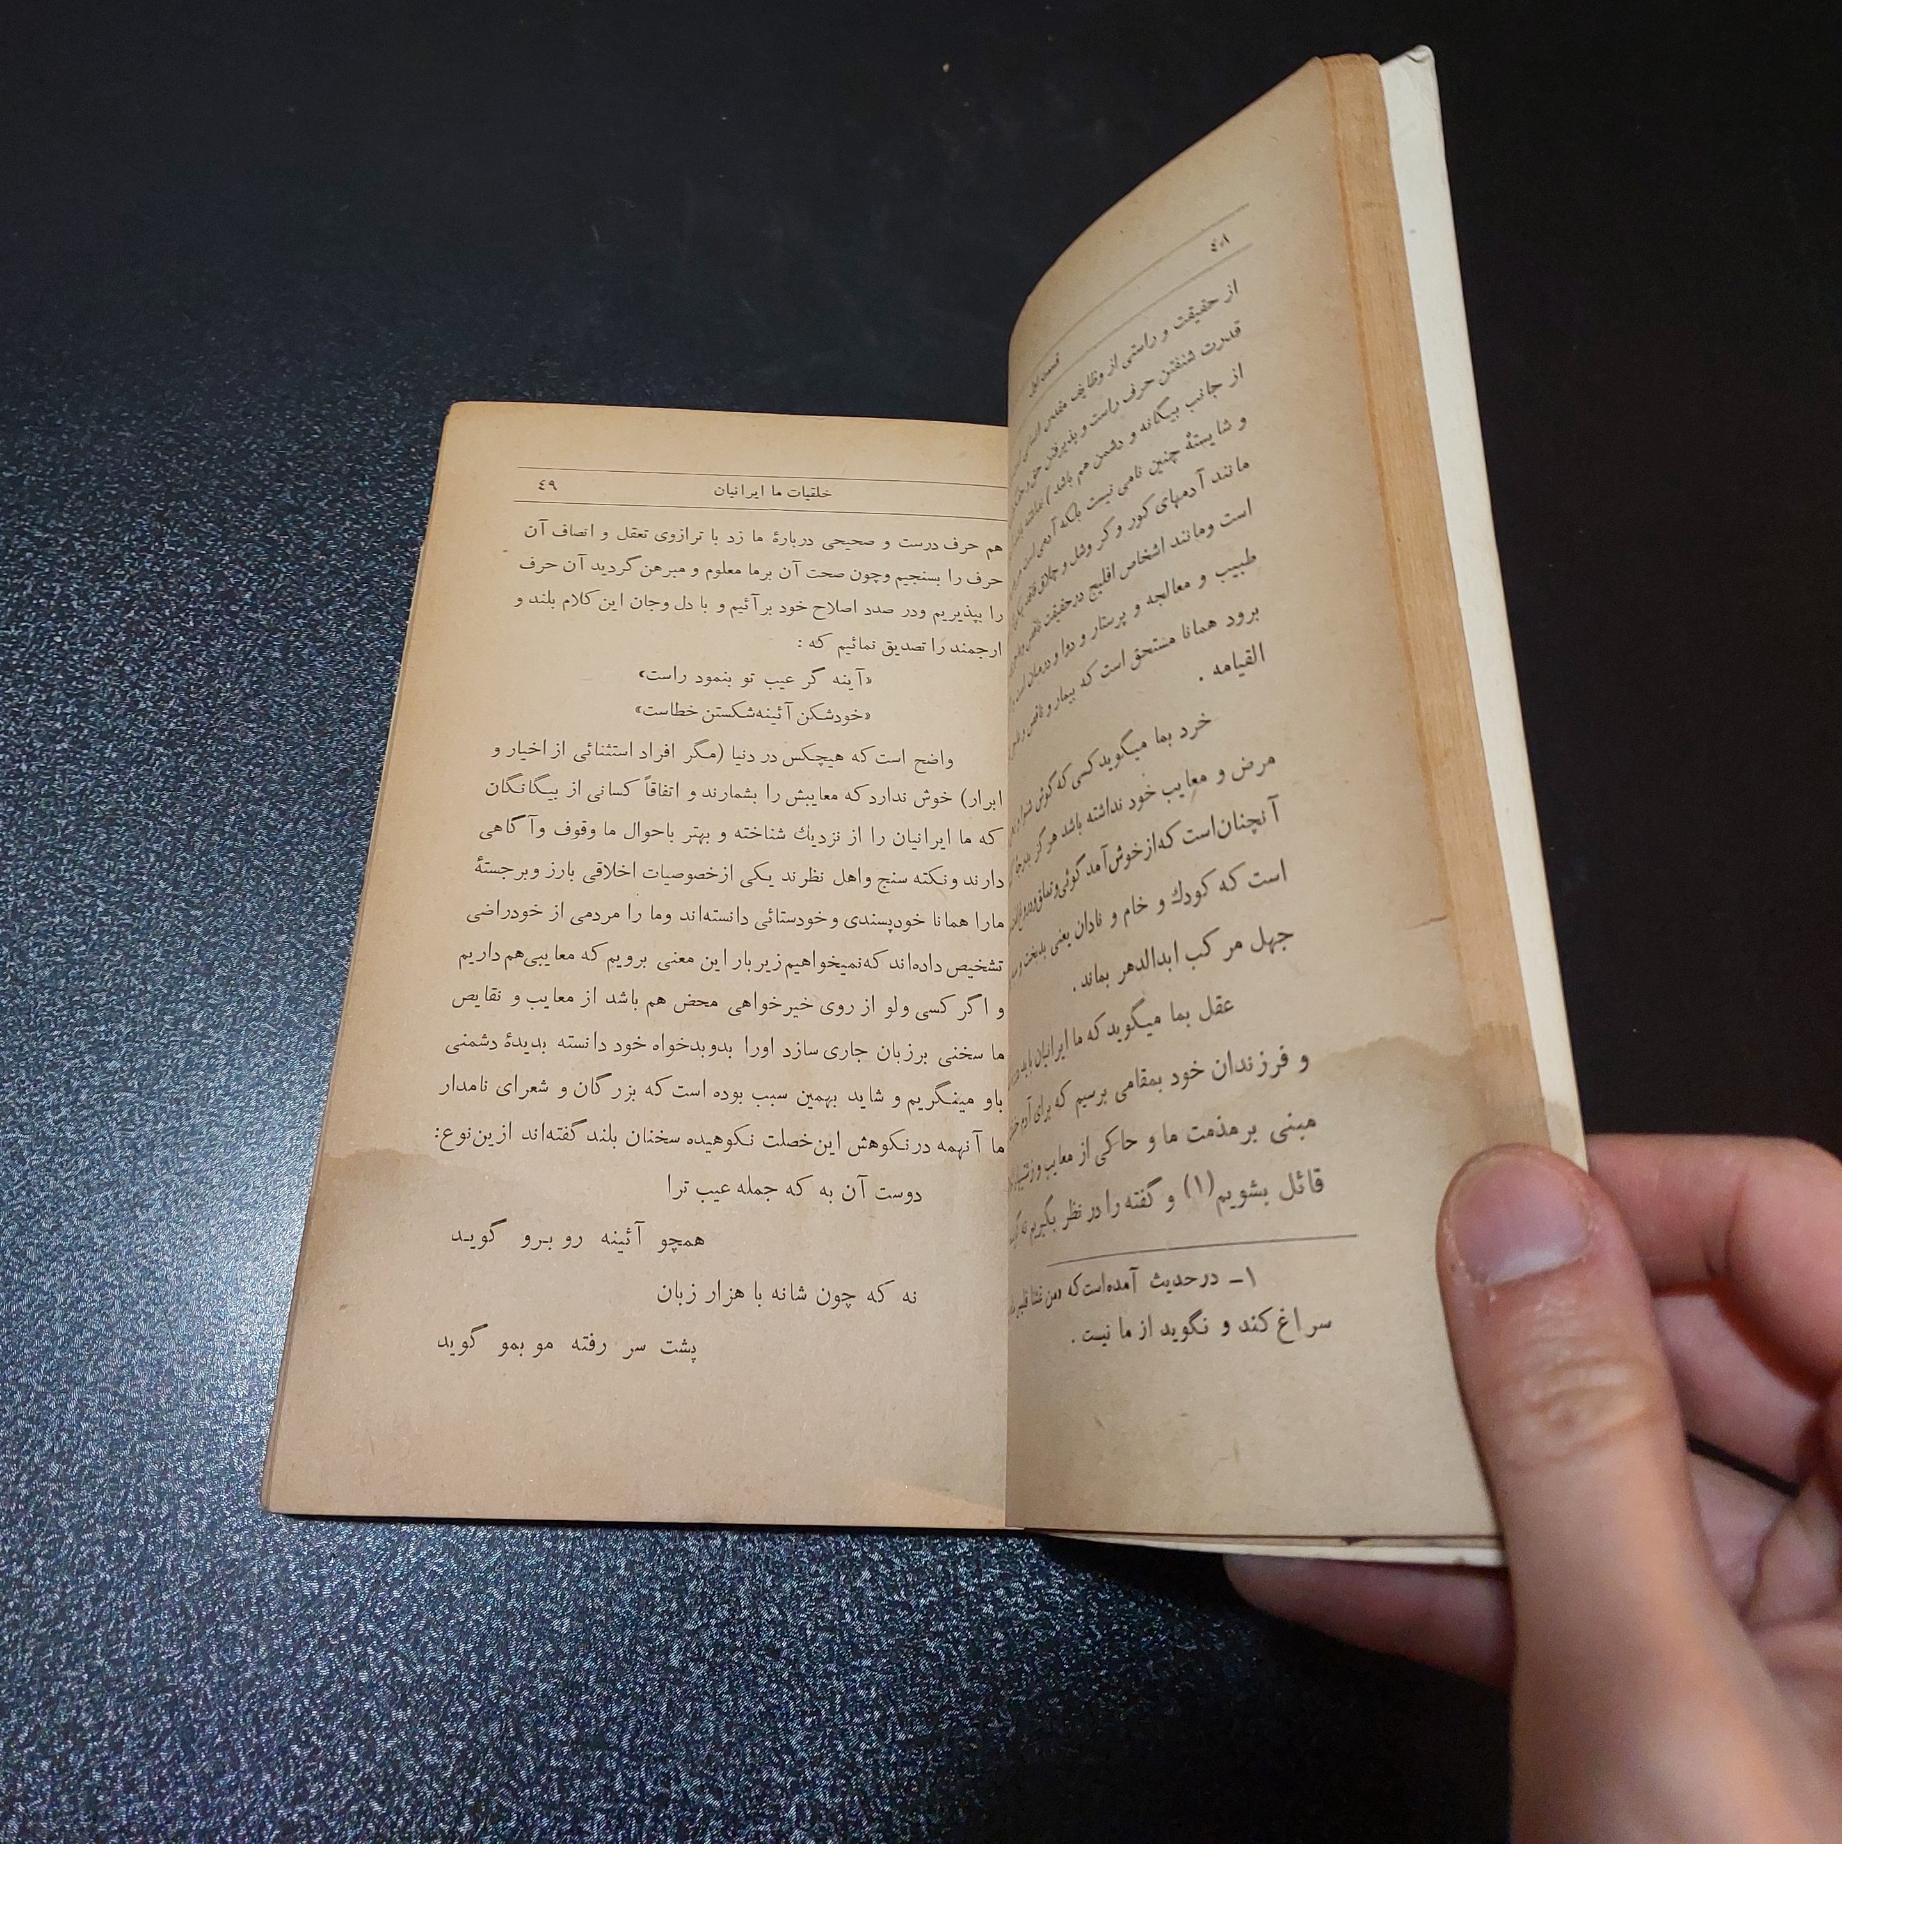 ٤٨
قسمت اول
از حقیقت و راستی از وظایف مقدس انسانی است
قدرت شنفتن حرف راست و پذیرفتن حق و
از جانب بیگانه و دشمن هم باشد) نداشته باشد
و شایستهٔ چنین نامی نیست بلکه آدمی است
مانند آدمهای کور و کر وشل و چلاق فاقد یک
است ومانند اشخاص افلیج درحقیقت ناقص
طبیب و معالجه و پرستار و دوا و درمان است
برود همانا مستحق است که بیمار و ناقص و
القیامه .
خرد بما میگوید کسی که گوش شنوا
مرض و معایب خود نداشته باشد هرگز بدرجهٔ
آنچنان‌است که‌از خوش‌آمد گوئی و تملق و دروغ
است که کودك و خام و نادان یعنی بدبخت و
جهل مرکب ابدالدهر بماند .
عقل بما میگوید که ما ایرانیان باید
و فرزندان خود بمقامی برسیم که برای آدم
مبنی بر مذمت ما و حاکی از معایب و زشتیهای
قائل بشویم(۱) و گفته را در نظر بگیریم نه
۱ـ درحدیث آمده‌است که «من غشنا فلیس
سراغ کند و نگوید از ما نیست .
خلقیات ما ایرانیان ٤٩
هم حرف درست و صحیحی دربارهٔ ما زد با ترازوی تعقل و انصاف آن
حرف را بسنجیم وچون صحت آن برما معلوم و مبرهن گردید آن حرف
را بپذیریم ودر صدد اصلاح خود برآئیم و با دل وجان این کلام بلند و
ارجمند را تصدیق نمائیم که :
«آینه گر عیب تو بنمود راست»
«خودشکن آئینه‌شکستن خطاست»
واضح است که هیچکس در دنیا (مگر افراد استثنائی از اخیار و
ابرار) خوش ندارد که معایبش را بشمارند و اتفاقاً کسانی از بیگانگان
که ما ایرانیان را از نزدیك شناخته و بهتر باحوال ما وقوف وآگاهی
دارند ونکته سنج واهل نظرند یکی ازخصوصیات اخلاقی بارز وبرجستهٔ
مارا همانا خودپسندی وخودستائی دانسته‌اند وما را مردمی از خودراضی
تشخیص داده‌اند که‌نمیخواهیم زیر بار این معنی برویم که معایبی‌هم داریم
و اگر کسی ولو از روی خیرخواهی محض هم باشد از معایب و نقایص
ما سخنی برزبان جاری سازد اورا بدوبدخواه خود دانسته بدیدهٔ دشمنی
باو مینگریم و شاید بهمین سبب بوده است که بزرگان و شعرای نامدار
ما آنهمه درنکوهش این‌خصلت نکوهیده سخنان بلند گفته‌اند ازین‌نوع:
دوست آن به که جمله عیب ترا
همچو آئینه روبرو گوید
نه که چون شانه با هزار زبان
پشت سر رفته مو بمو گوید